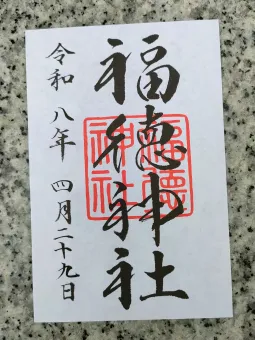 福徳神社
令和八年 四月二十九日
福徳神社